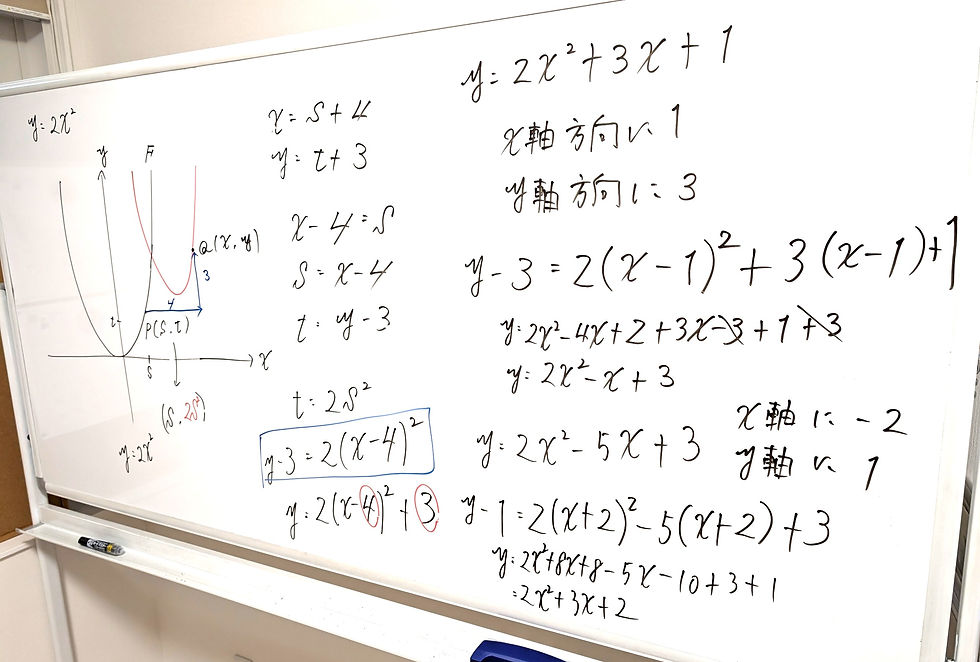 y=2x²
y
F
Q(x,y)
3
4
t
P(s,t)
x
s
(s,2s²)
y=2x²
x=s+4
y=t+3
x-4=s
s=x-4
t=y-3
t=2s²
y-3=2(x-4)²
y=2(x-4)²+3
y=2x²+3x+1
x軸方向に1
y軸方向に3
y-3=2(x-1)²+3(x-1)+1
y=2x²-4x+2+3x-3+1+3
y=2x²-x+3
x軸に-2
y軸に1
y=2x²-5x+3
y-1=2(x+2)²-5(x+2)+3
y=2x²+8x+8-5x-10+3+1
=2x²+3x+2